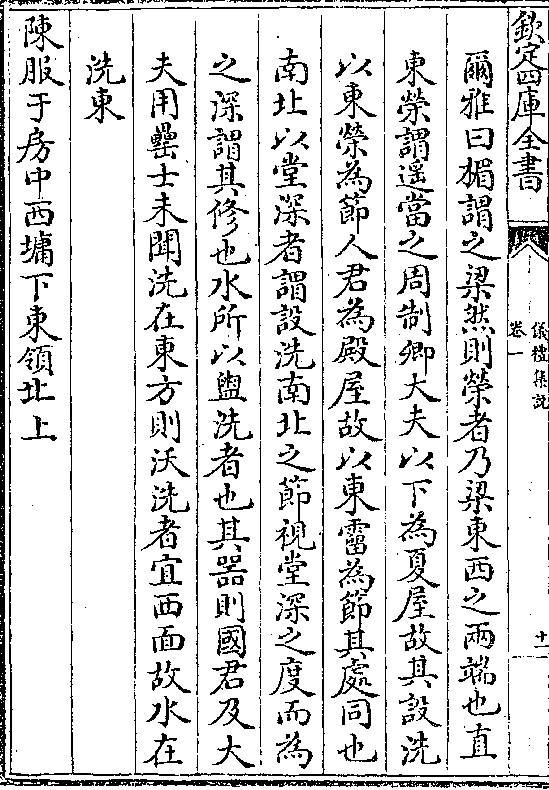 欽定四庫全書
儀禮集説
卷一
十一
爾雅曰楣謂之梁然則榮者乃梁東西之兩端也直
東榮謂遥當之周制卿大夫以下為夏屋故其設洗
以東榮為節人君為殿屋故以東霤為節其處同也
南北以堂深者謂設洗南北之節視堂深之度而為
之深謂其修也水所以盥洗者也其器則國君及大
夫用罍士未聞洗在東方則沃洗者宜西面故水在
洗東
陳服于房中西墉下東領北上